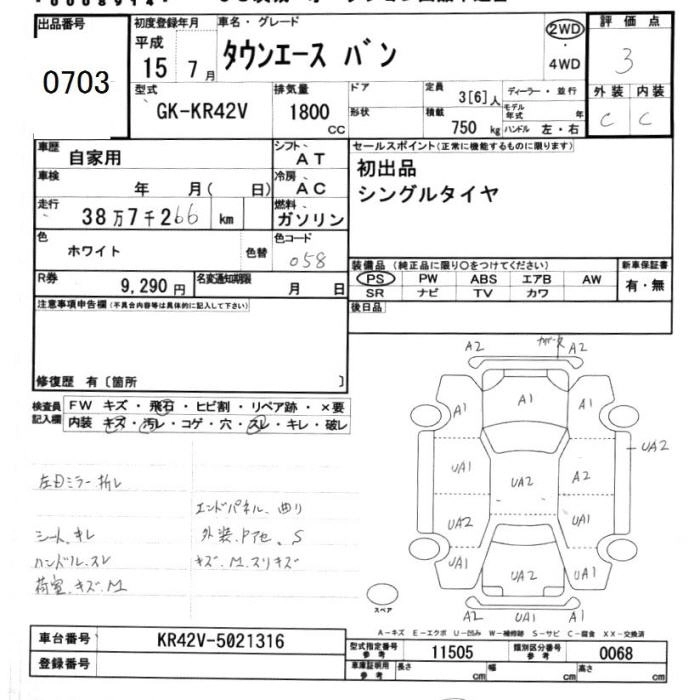 出品番号 初度登録年月 車名・グレード 2WD 評価点
0703 平成 15 年 7 月 タウンエース バン ・ 4WD 3
型式 排気量 ドア 定員 3[6]人 ディーラー・並行 外装 内装
GK-KR42V 1800 CC 形状 積載 750 kg モデル年式 年 C C
ハンドル 左・右
車歴 自家用 シフト AT セールスポイント(正常に機能するものに限ります)
車検 年 月( 日) 冷房 AC 初出品
走行 38万7千266 km 燃料 ガソリン シングルタイヤ
色 ホワイト 色替 色コード 058
R券 9,290円 名変通知期限 月 日
装備品 (純正品に限り○をつけてください) 新車保証書
PS PW ABS エアB AW 有・無
SR ナビ TV カワ
注意事項申告欄(不具合内容等は具体的に記入して下さい) 後日品
修復歴 有〔箇所 〕
検査員記入欄 FW キズ・飛石・ヒビ割・リペア跡・×要
内装 キズ・汚レ・コゲ・穴・スレ・キレ・破レ
A2 A2
A1 A1 A1
UA2
UA1 UA2 A2
UA2 UA1
UA1 UA2 UA1
A2 UA1 A1
スペア
左Dミラー折レ
エンドパネル、曲リ
シート、キレ 外装、Pアセ、S
ハンドル、スレ キズ、M、スリキズ
荷室、キズ、M
A-キズ E-エクボ U-凹み W-補修跡 S-サビ C-腐食 XX-交換済
車台番号 KR42V-5021316 型式指定番号 参考 11505 類別区分番号 参考 0068
登録番号 車庫証明用 参考 長さ cm 幅 cm 高さ cm